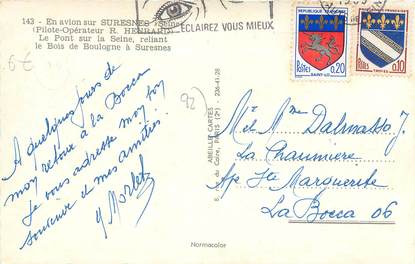 143 - En avion sur SURESNES (Seine)
(Pilote-Opérateur R. HENRARD)
Le Pont sur la Seine, reliant
le Bois de Boulogne à Suresnes
ECLAIREZ VOUS MIEUX
6€
92)
A quelques jours de
mon retour à la Bocca
je vous adresse mon bon
souvenir et mes amitiés.
Y Morlet
ABEILLE-CARTES
du Caire, PARIS (2e) - 236-41-28
REPUBLIQUE FRANCAISE
POSTES 0,20
SAINT-LO
POSTES 0,10
TROYES
Mr et Mme Dalmasso J.
La Chaumière
Ap Ste Marguerite
La Bocca 06
Normacolor